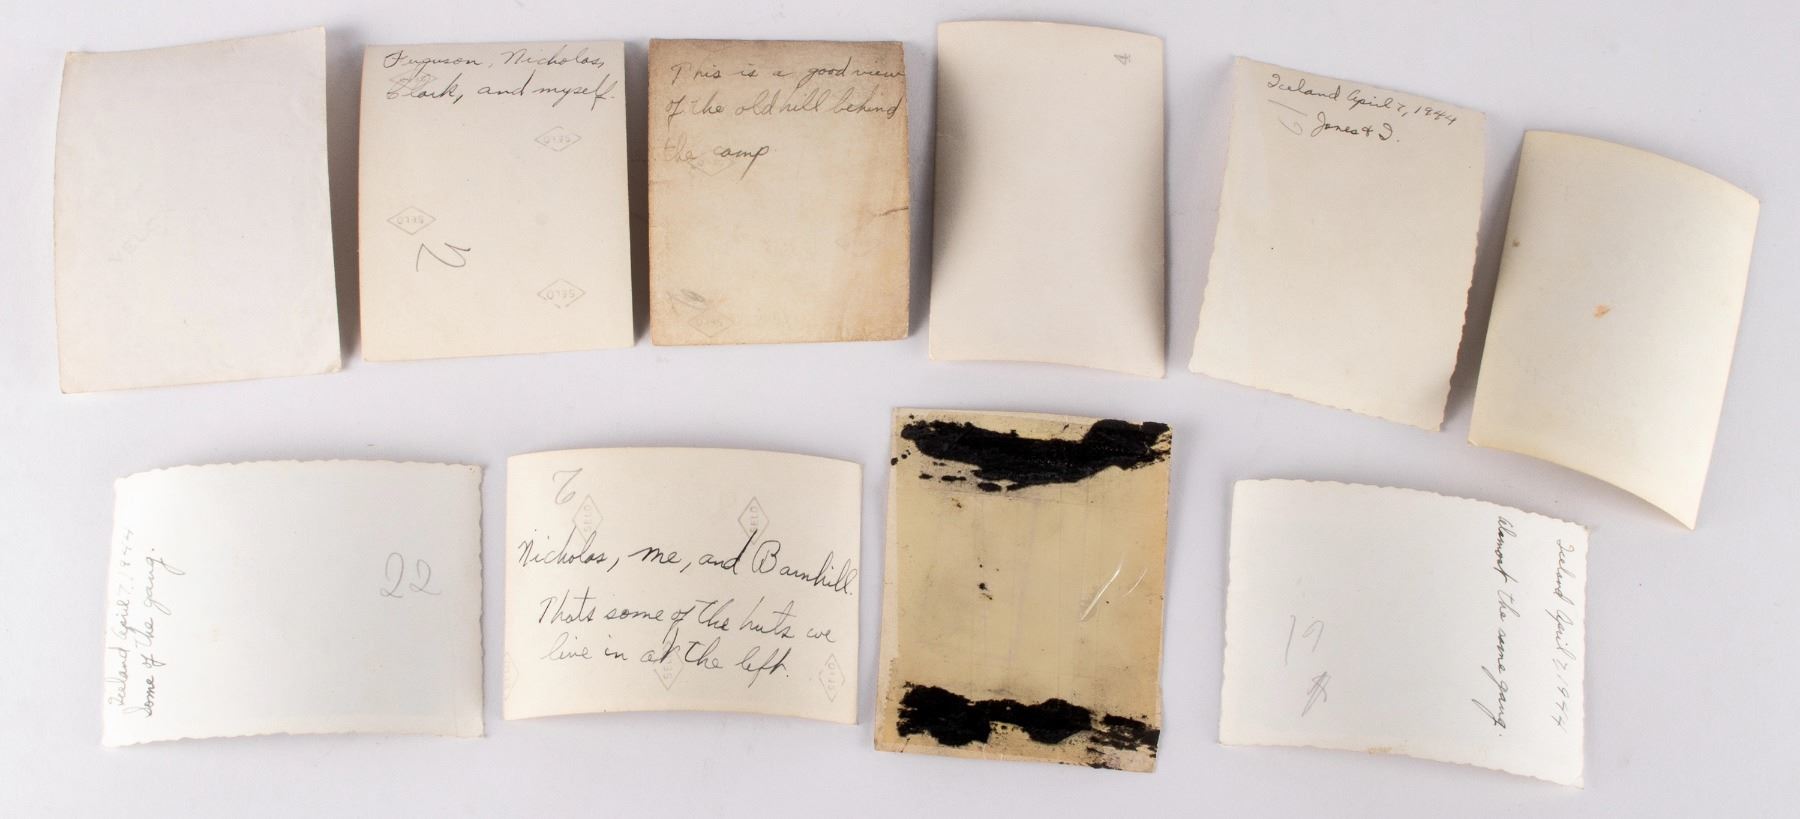 VELOX
Ferguson, Nicholas,
Clark, and myself.
SELO
SELO
SELO
This is a good view
of the old hill behind
the camp
SELO
4
Iceland April 7, 1944
Jones & I.
Iceland April 7, 1944
Some of the gang.
22
SELO
SELO
Nicholas, me, and Barnhill.
Thats some of the huts we
live in at the left.
SELO
SELO
Iceland April 7 1944
Alamost the same gang.
19